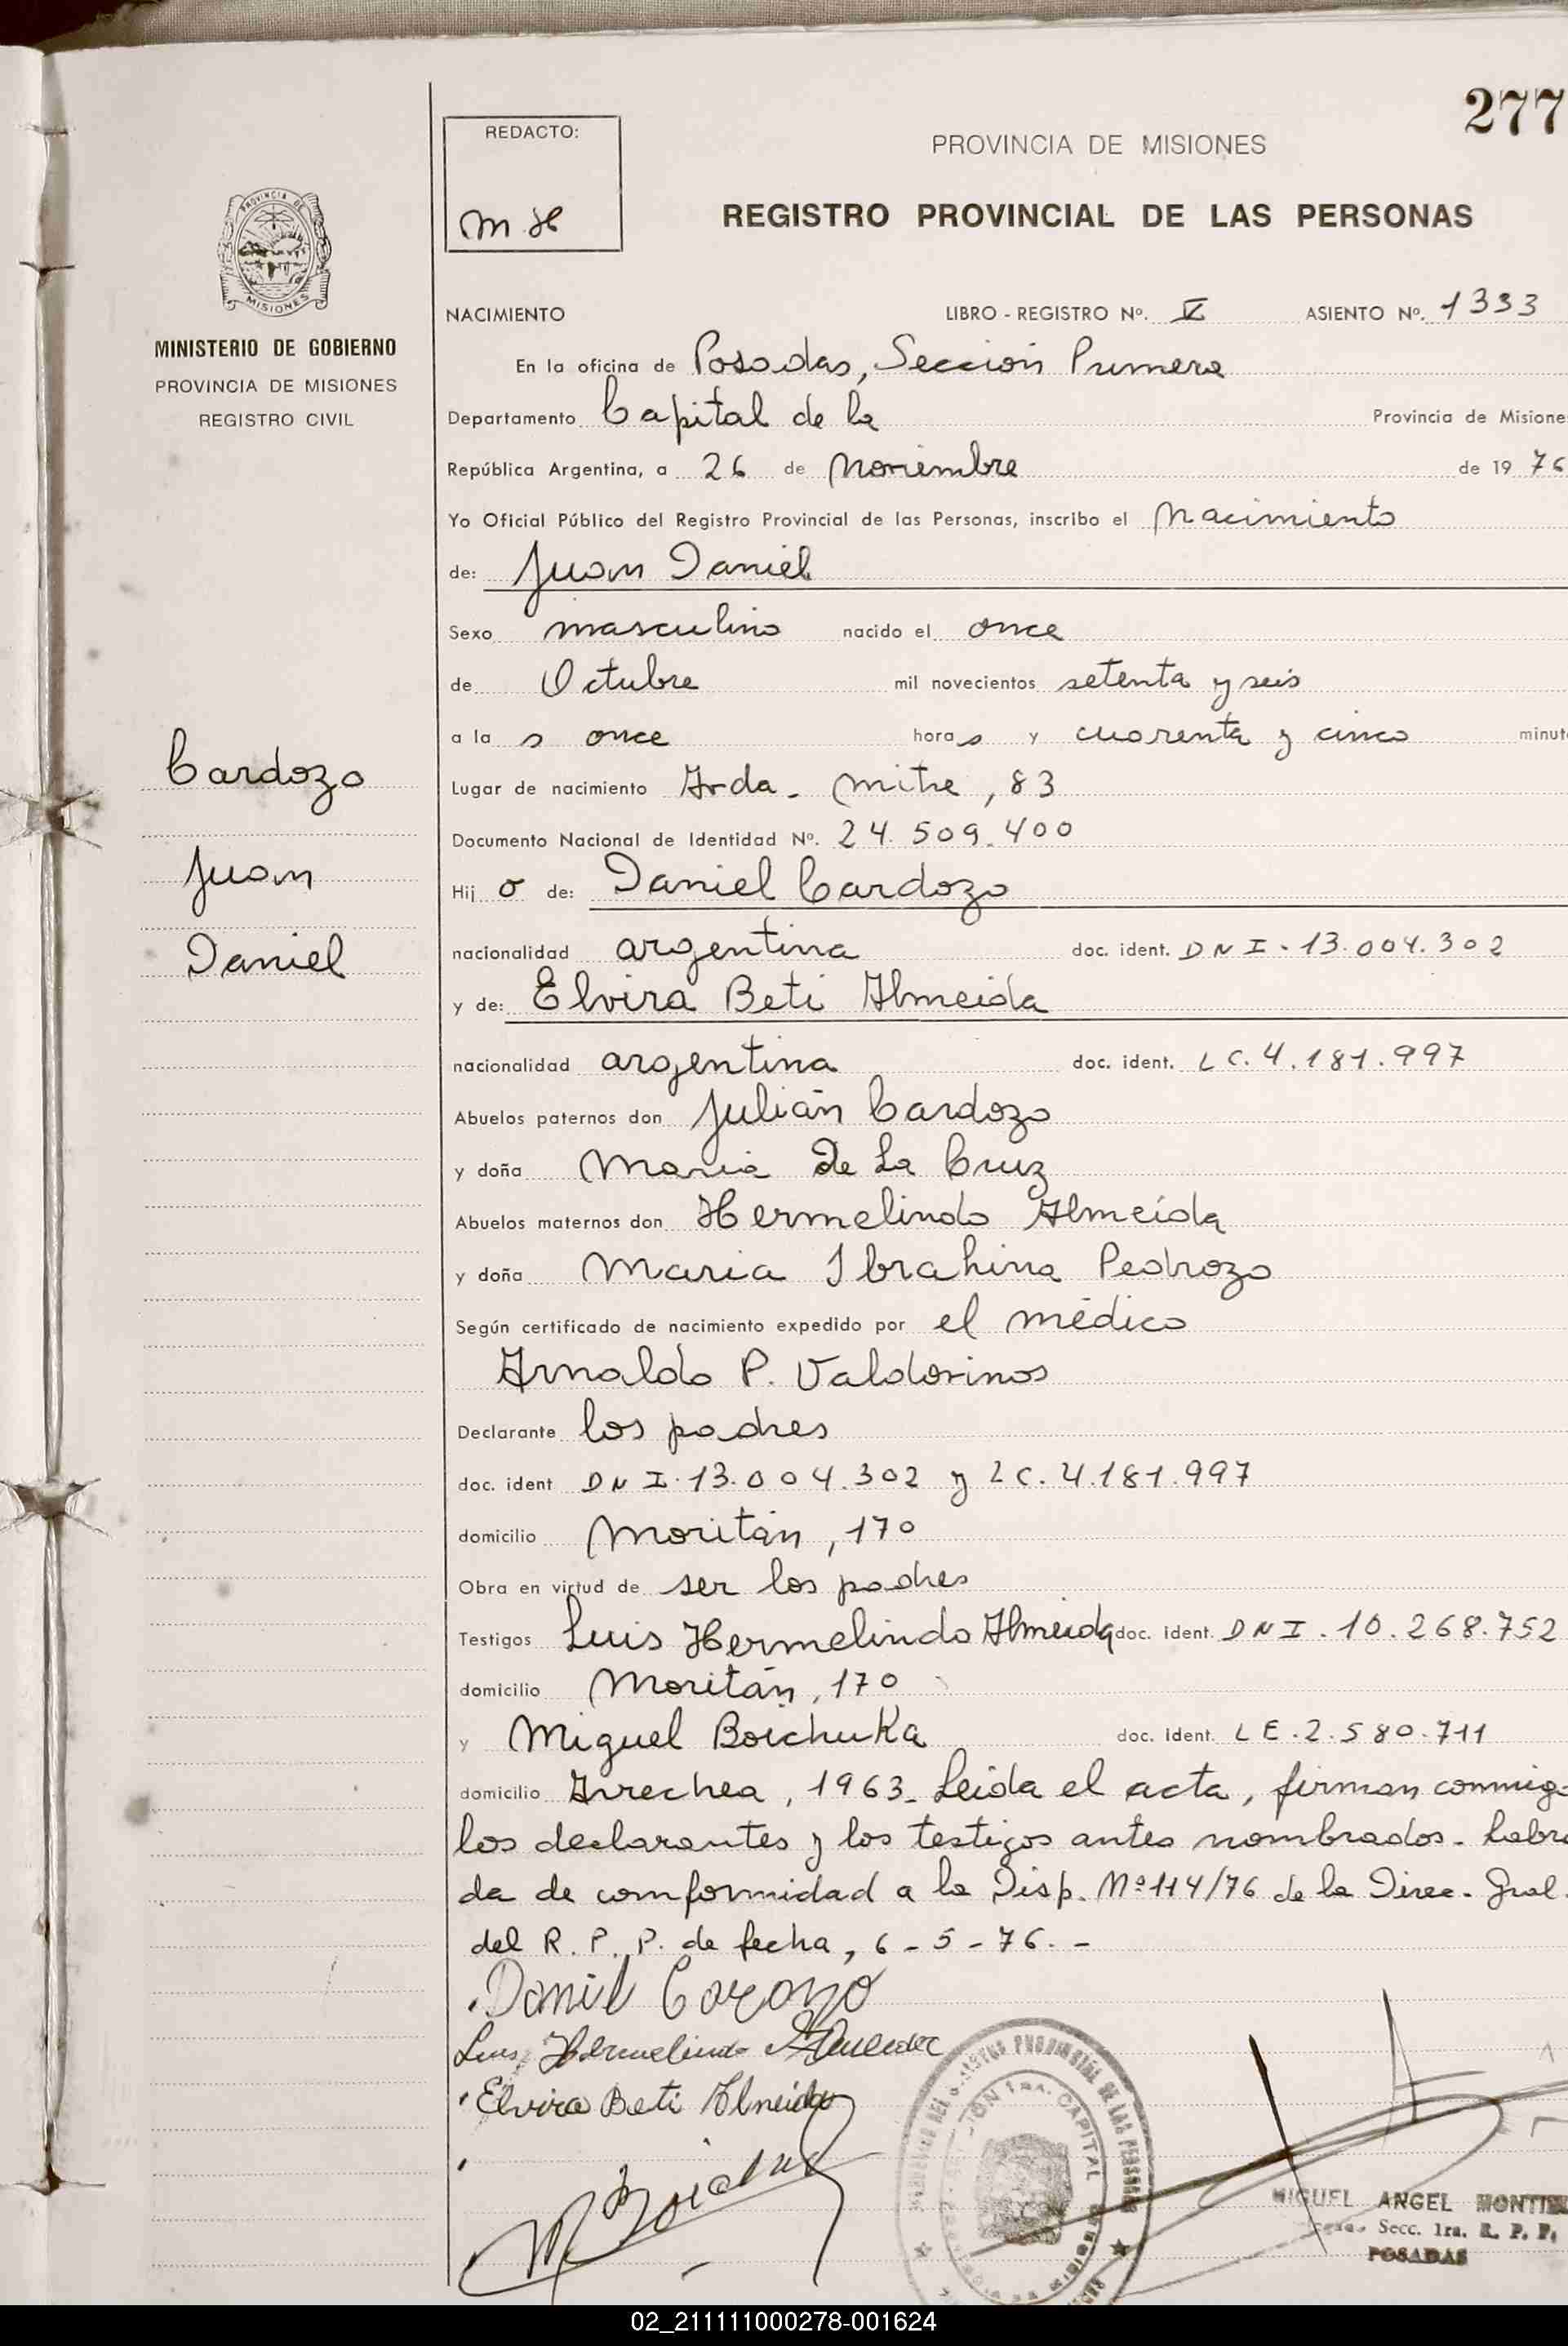 277
REDACTO:
M.H
PROVINCIA DE MISIONES
REGISTRO PROVINCIAL DE LAS PERSONAS
PROVINCIA DE
MISIONES
MINISTERIO DE GOBIERNO
PROVINCIA DE MISIONES
REGISTRO CIVIL
NACIMIENTO LIBRO - REGISTRO Nº. V ASIENTO Nº. 1333
En la oficina de Posadas, Sección Primera
Departamento Capital de la Provincia de Misione
República Argentina, a 26 de Noviembre de 19 76
Yo Oficial Público del Registro Provincial de las Personas, inscribo el Nacimiento
de: Juan Daniel
Sexo masculino nacido el once
de Octubre mil novecientos setenta y seis
a la s once hora s y cuarenta y cinco minut
Cardozo
Juan
Daniel
Lugar de nacimiento Avda. Mitre, 83
Documento Nacional de Identidad Nº. 24.509.400
Hij o de: Daniel Cardozo
nacionalidad argentina doc. ident. DNI.13.004.302
y de: Elvira Beti Almeida
nacionalidad argentina doc. ident. LC.4.181.997
Abuelos paternos don Julián Cardozo
y doña Maria De La Cruz
Abuelos maternos don Hermelindo Almeida
y doña Maria Ibrahina Pedrozo
Según certificado de nacimiento expedido por el médico
Arnaldo P. Valdovinos
Declarante los padres
doc. ident DNI.13.004.302 y LC.4.181.997
domicilio Moritán, 170
Obra en virtud de ser los padres
Testigos Luis Hermelindo Almeida doc. ident. DNI.10.268.752
domicilio Moritán, 170
y Miguel Boichuka doc. ident. LE.2.580.711
domicilio Arrechea, 1963_ Leida el acta, firman conmigo
los declarantes y los testigos antes nombrados. Labra
da de conformidad a la Disp. Nº 114/76 de la Direc. Gral.
del R.P.P. de fecha, 6-5-76.-
Daniel Carozo
Luis Hermelindo Almeida
Elvira Beti Almeida
CAPITAL
MIGUEL ANGEL
Secc. 1ra. R. P. P.
POSADAS
02_211111000278-001624